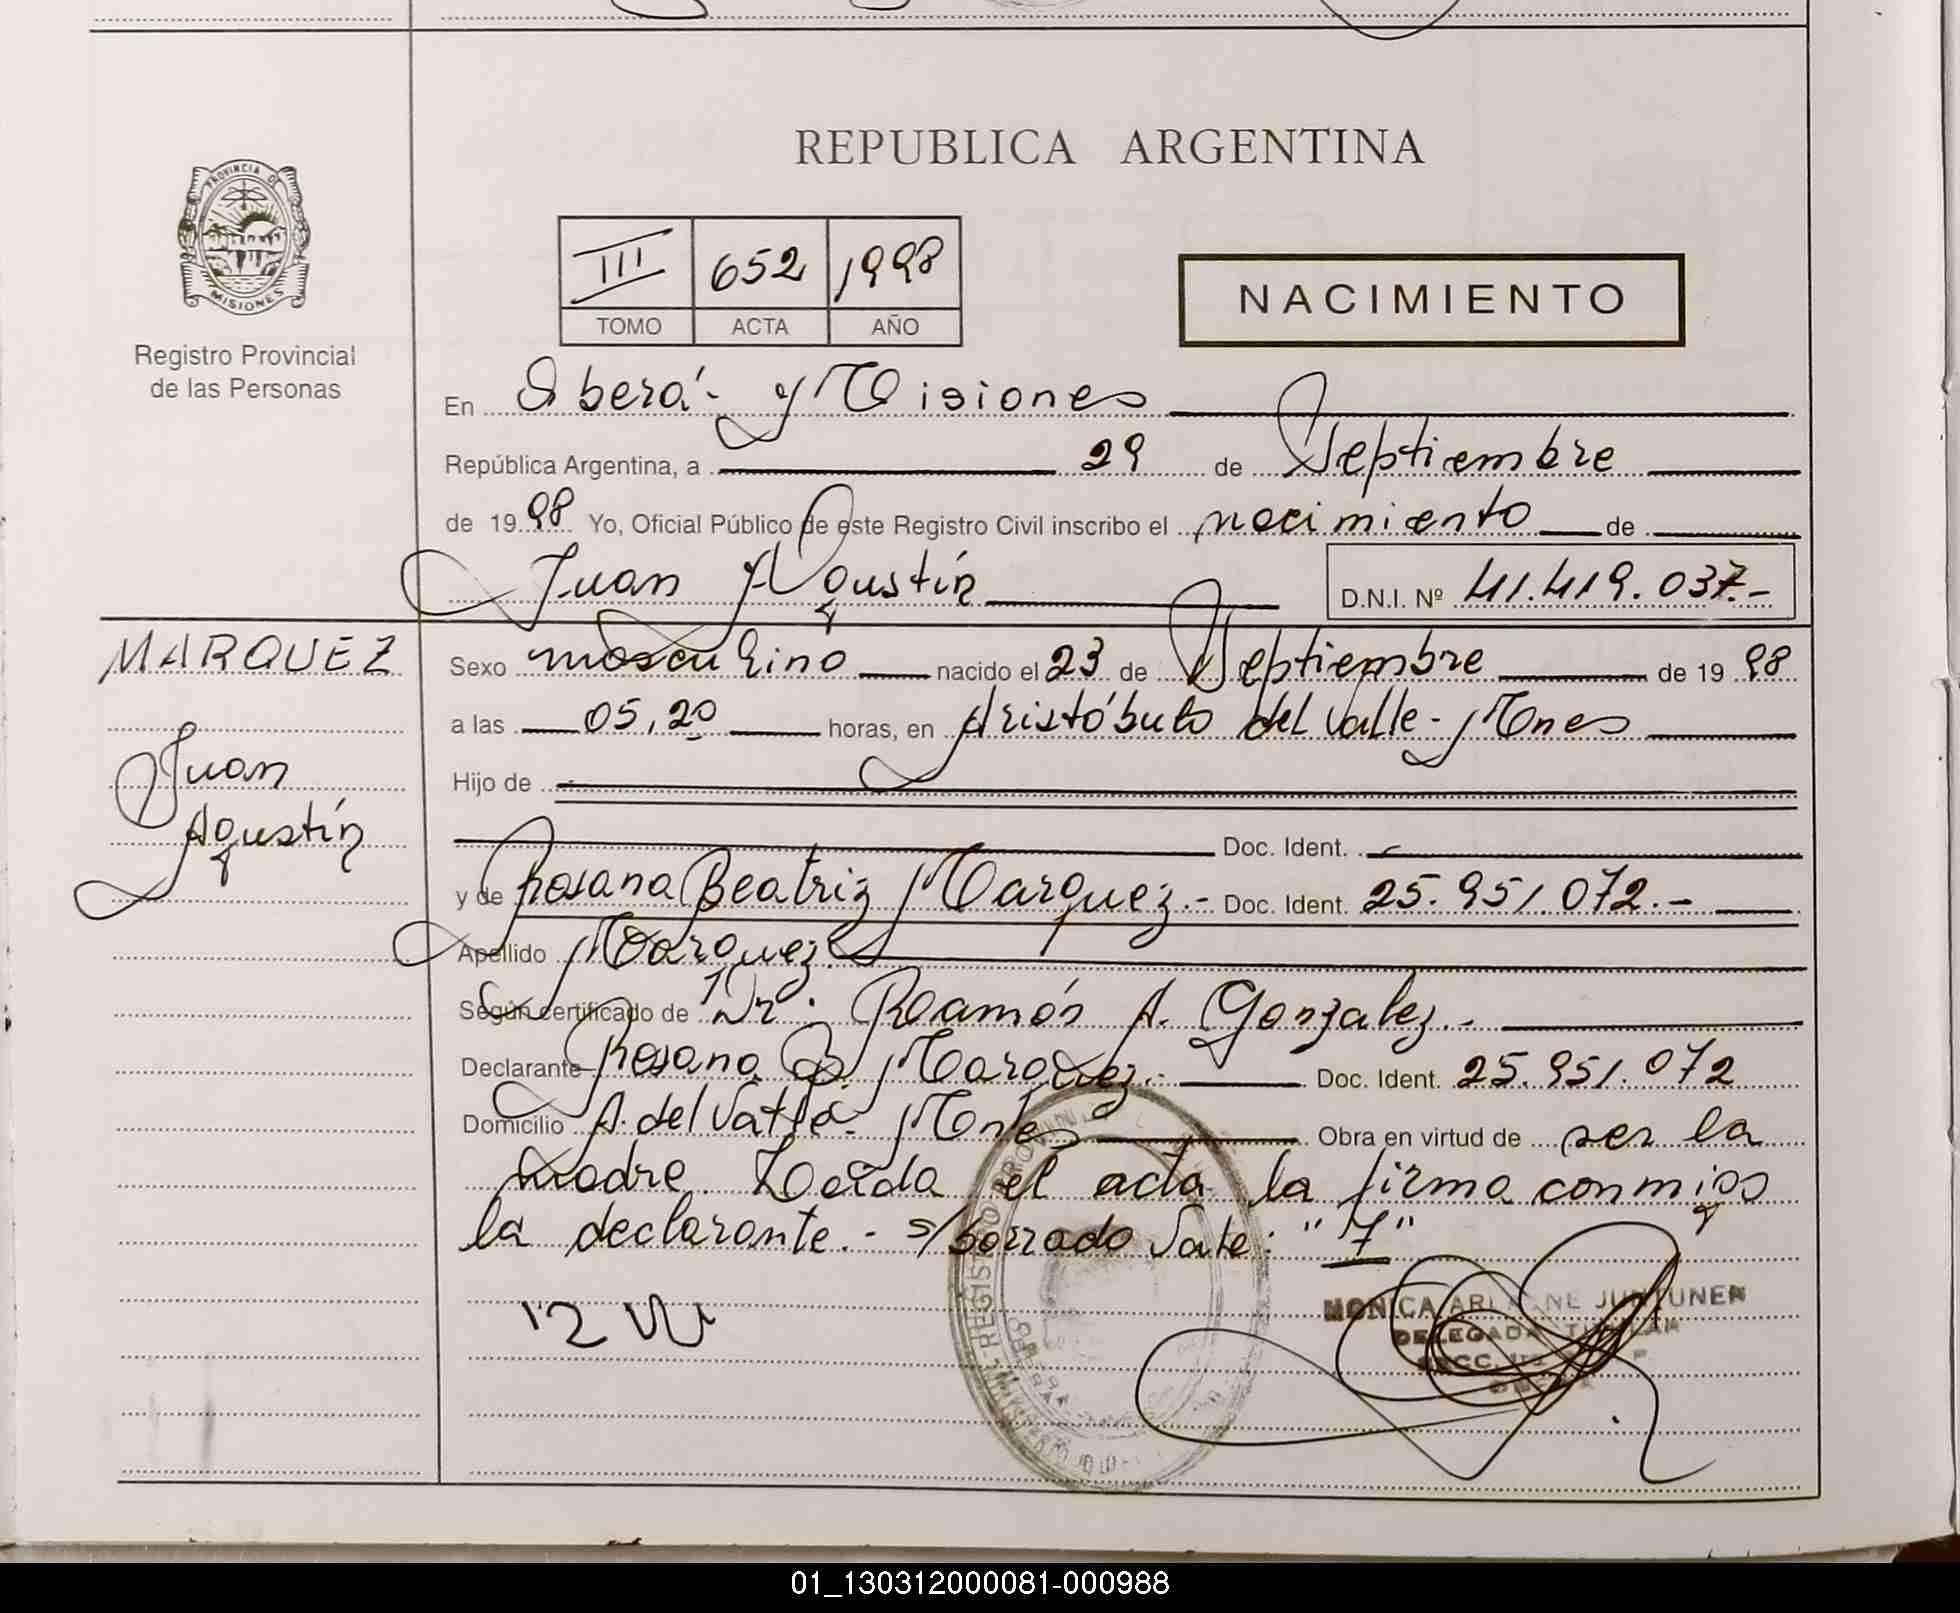 REPUBLICA ARGENTINA
PROVINCIA DE
MISIONES
Registro Provincial
de las Personas
III 652 1998
TOMO ACTA AÑO
NACIMIENTO
En Oberá - Misiones
República Argentina, a 29 de Septiembre
de 1998 Yo, Oficial Público de este Registro Civil inscribo el nacimiento de
Juan Agustín D.N.I. Nº 41.419.037.-
MARQUEZ
Juan
Agustín
Sexo masculino nacido el 23 de Septiembre de 1998
a las 05,20 horas, en Aristóbulo del Valle - Mnes
Hijo de
Doc. Ident.
y de Rosana Beatriz Marquez.- Doc. Ident. 25.951.072.-
Apellido Marquez
Según certificado de Dr. Ramón A. Gonzalez.-
Declarante Rosana B. Marquez.- Doc. Ident. 25.951.072
Domicilio A. del Valle - Mnes Obra en virtud de ser la
madre. Leída el acta la firma conmigo
la declarante.- s/borrado Vale: "7"
MONICA JUNTUNEN
DELEGADA TITULAR
01_130312000081-000988